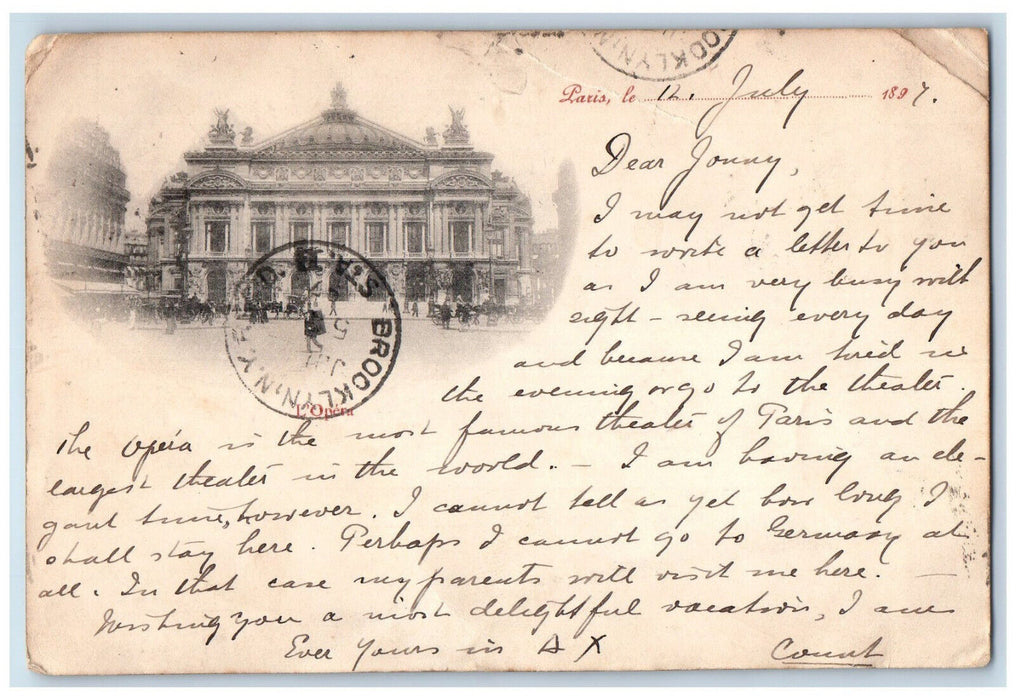 BROOKLYN, N.Y.
Paris, le 12. July 1897.
Dear Jonny,
I may not get time
to write a letter to you
as I am very busy with
sight-seeing every day
and because I am tired in
the evening or go to the theater.
BROOKLYN, N.Y. REC'D.
L'Opéra
The Opéra is the most famous theater of Paris and the
largest theater in the world. – I am having an ele-
gant time, however. I cannot tell as yet how long I
shall stay here. Perhaps I cannot go to Germany at
all. In that case my parents will visit me here. –
Wishing you a most delightful vacation, I am
Ever Yours in Δ X Count